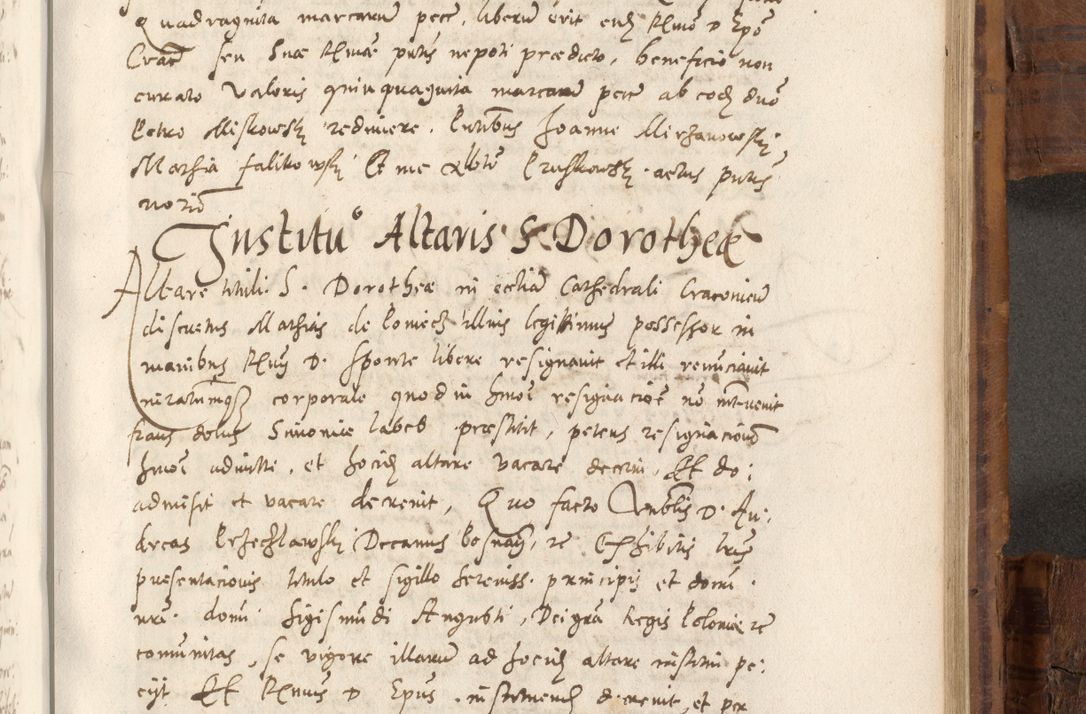 Quadraginta marcarum pecć, liberum erit eidḿ Rm̃o D Epõ
Cracõ seu Suæ Rm̃æ ptis nepoti prædicto, beneficiũ non
curato Valoris quinquaginta marcarũ pecć ab eodḿ dnõ
Petro Miskowskj redimere. Pñtibus Joanne
Mathia falikowskj Et me Albtõ Cruskowskj. actus pñtis
notriõ
Institũ Altaris S Dorotheæ
Altare tituli S. Dorotheæ in ecclia Cathedrali Craconieñ
discretus Mathias de illius legittimus possessor in
manibus Rm̃j D. sponte libere resignavit et illi renunciavit
corporale quod in hm̃oi resignacioẽ nõ intervenit
fraus dolus Simoniæ labes præstitit, petens resignacionẽ
hm̃oi admitti, et hocidḿ altare vacare decerni, Et do:
admisit et vacare decrevit, Quo facto Venblis D. An,
dreas Przechlawskj Decanus Posnañ, rẽ Exhibitis lris
presentacionis titulo et sigillo Sereniss. principis et domi.
nrĩ. domi. Sigismundi Augusti, Dei grã Regis Poloniæ rẽ
comunitas, se vigore illarũ ad hocidḿ altare institui pe:
cijt Et Rm̃us D Epus. instituendḿ decrevit, et per